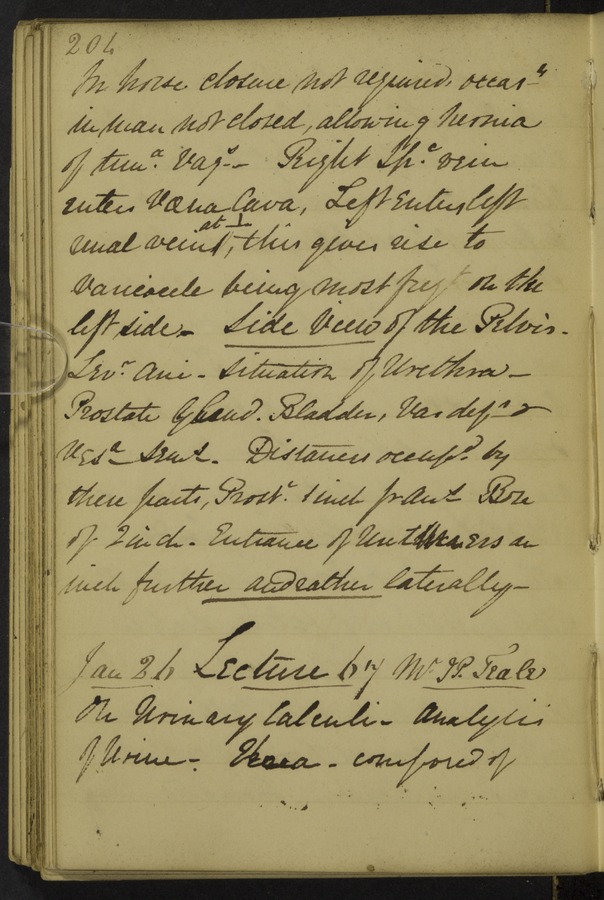 204
In horse closure not required. occas.n
in man not closed, allowing hernia
of tun.a Vag.s - Right Sp.c vein
enters Væna Cava, Left enters left
renal vein at ⊥, this gives rise to
Varicocele being most freq.t on the
left side - Side View of the Pelvis -
Lev.r Ani - Situation of Urethra -
Prostate Gland. Bladder, Vas def.s &
Ves.a Sem.l - Distances occup.d by
these parts, Prost.c 1 inch fr Ant Box
of 2 inch - Entrance of Uretters an
inch further and rather laterally -
Jan 26 Lecture by Mr T.P. Teale
On Urinary Calculi - Analysis
of Urine - Urea - composed of